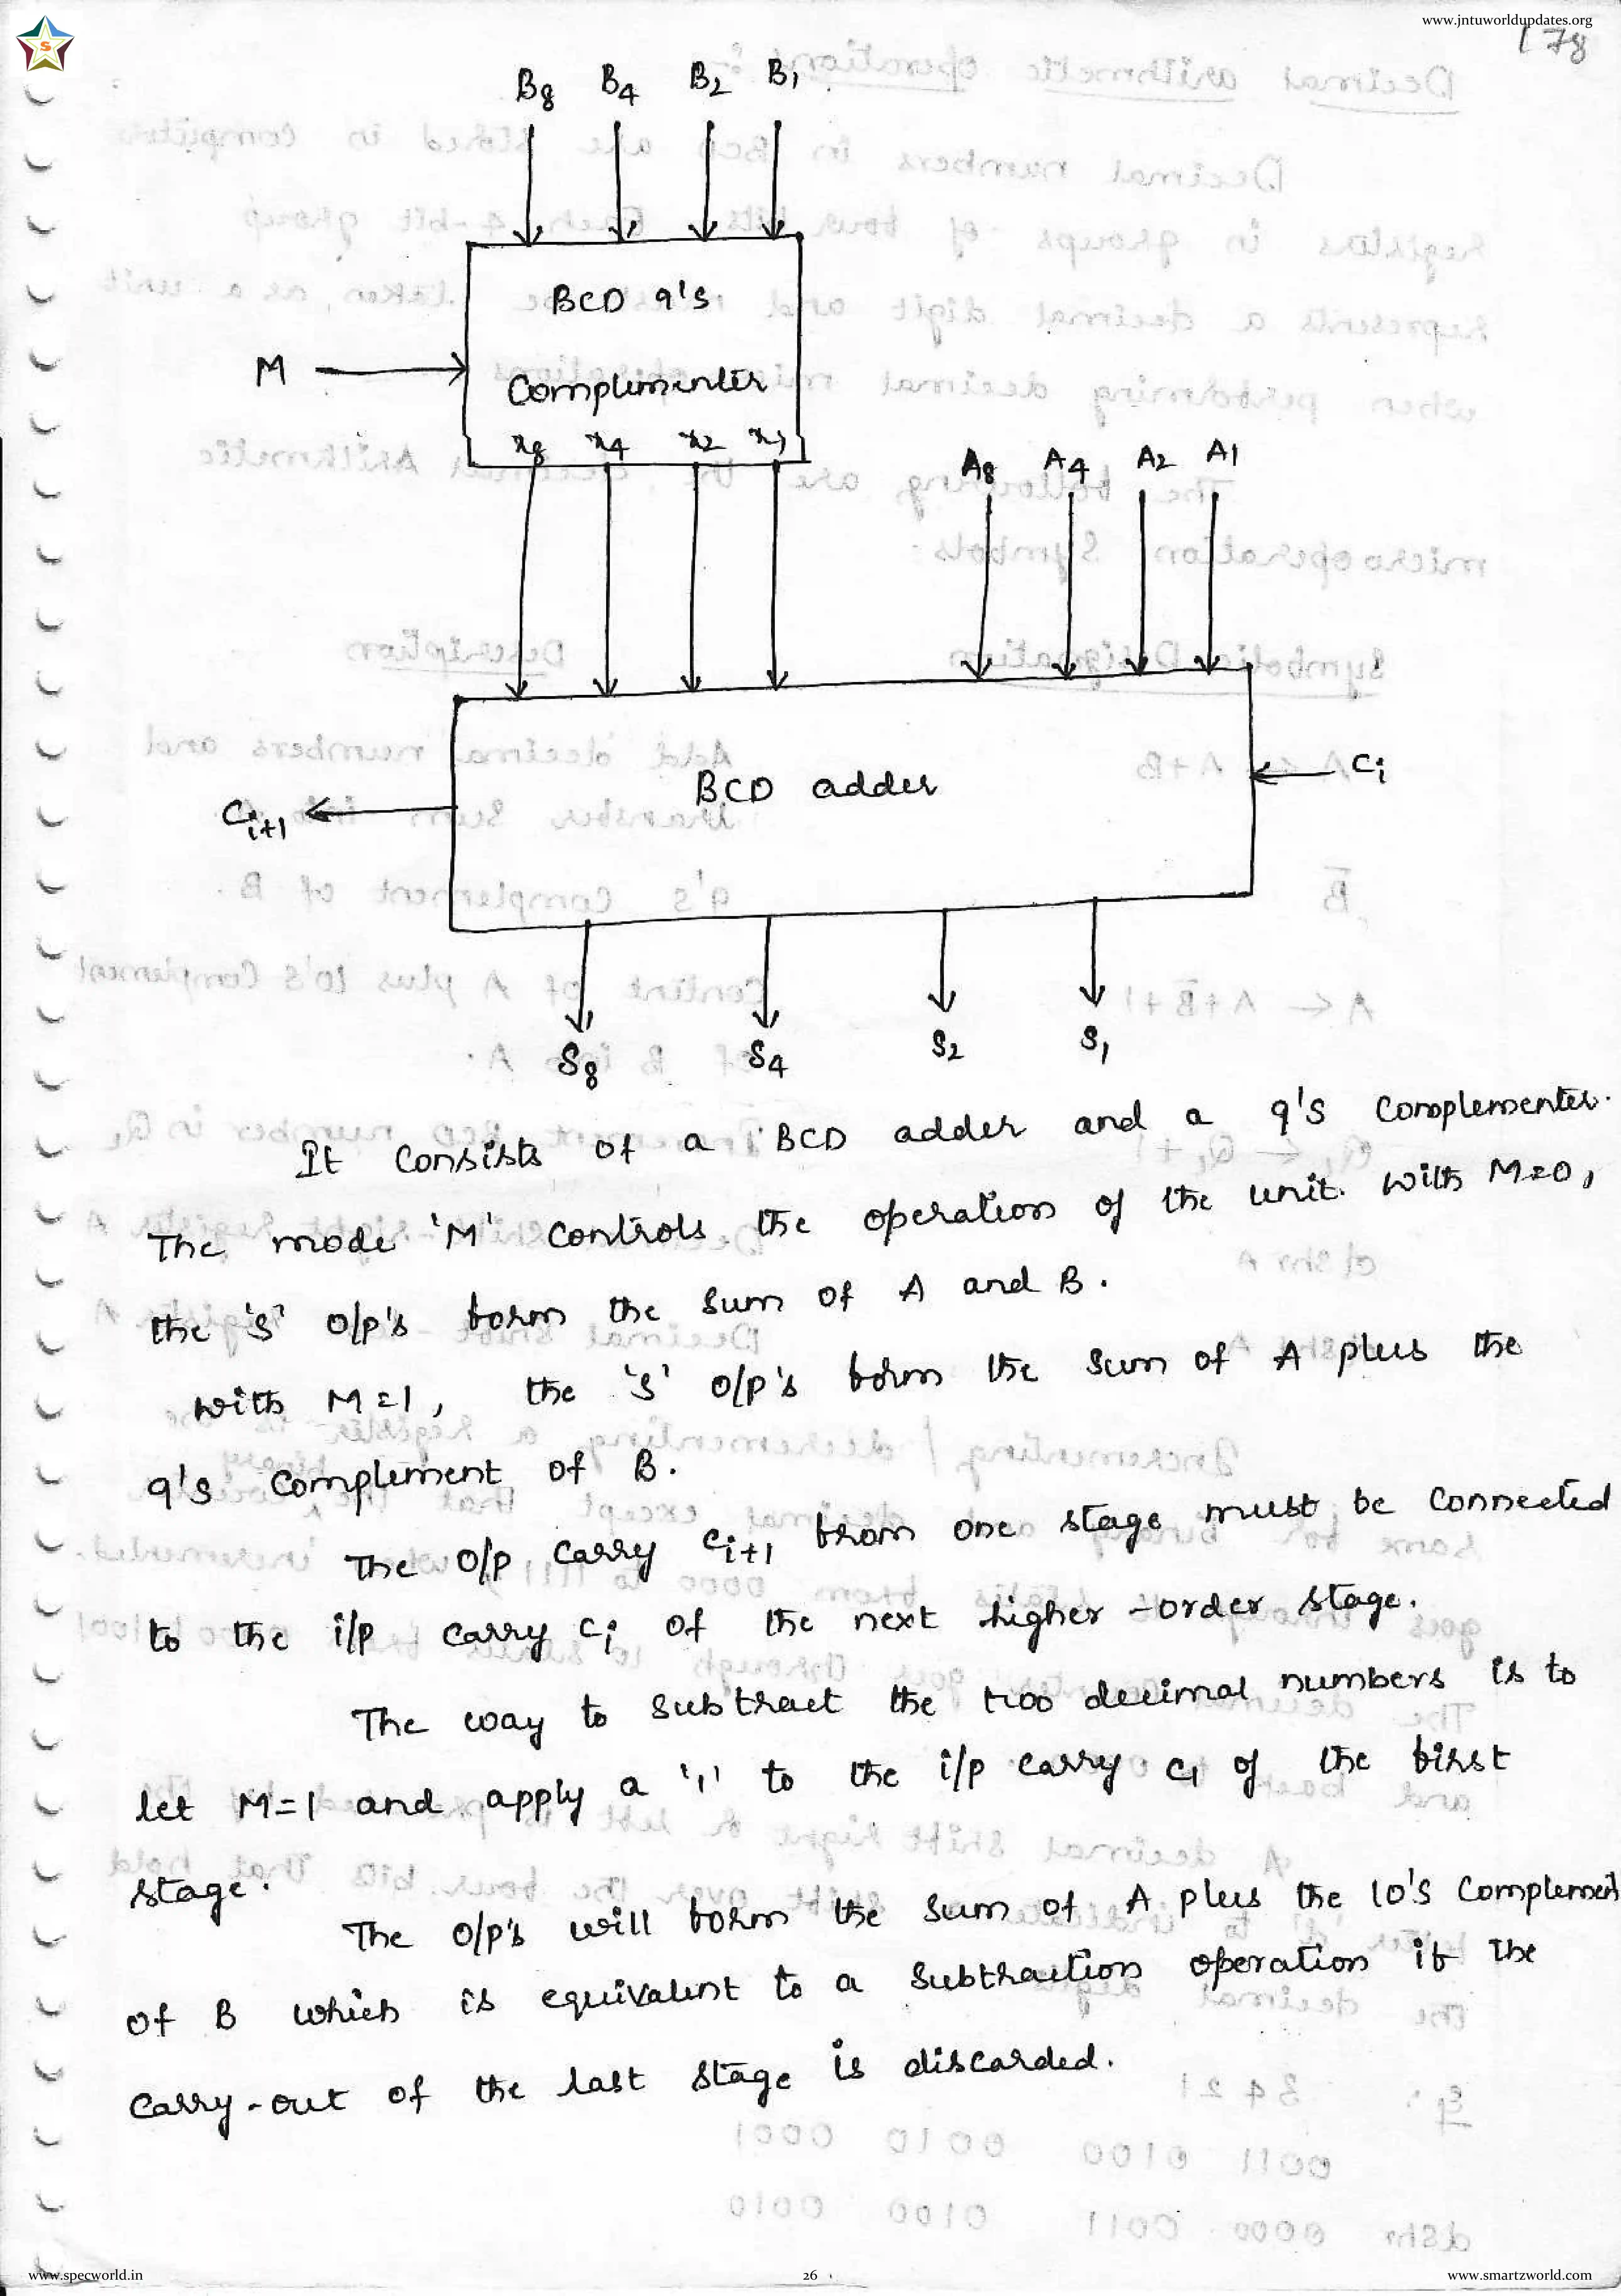 www.jntuworldupdates.org
178
B8 B4 B2 B1
BCD 9's
M
Complementer
x8 x4 x2 x1
A8 A4 A2 A1
BCD adder
Ci
Ci+1
S8 S4 S2 S1
It consists of a BCD adder and a 9's complementer.
The mode 'M' controls the operation of the unit. with M=0,
the 'S' o/p's form the sum of A and B.
with M=1, the 'S' o/p's form the sum of A plus the
9's complement of B.
The o/p carry Ci+1 from one stage must be connected
to the i/p carry Ci of the next higher-order stage.
The way to subtract the two decimal numbers is to
let M=1 and apply a '1' to the i/p carry C1 of the first
stage.
The o/p's will form the sum of A plus the 10's Complement
of B which is equivalent to a subtraction operation if the
carry-out of the last stage is discarded.
www.specworld.in 26 www.smartzworld.com